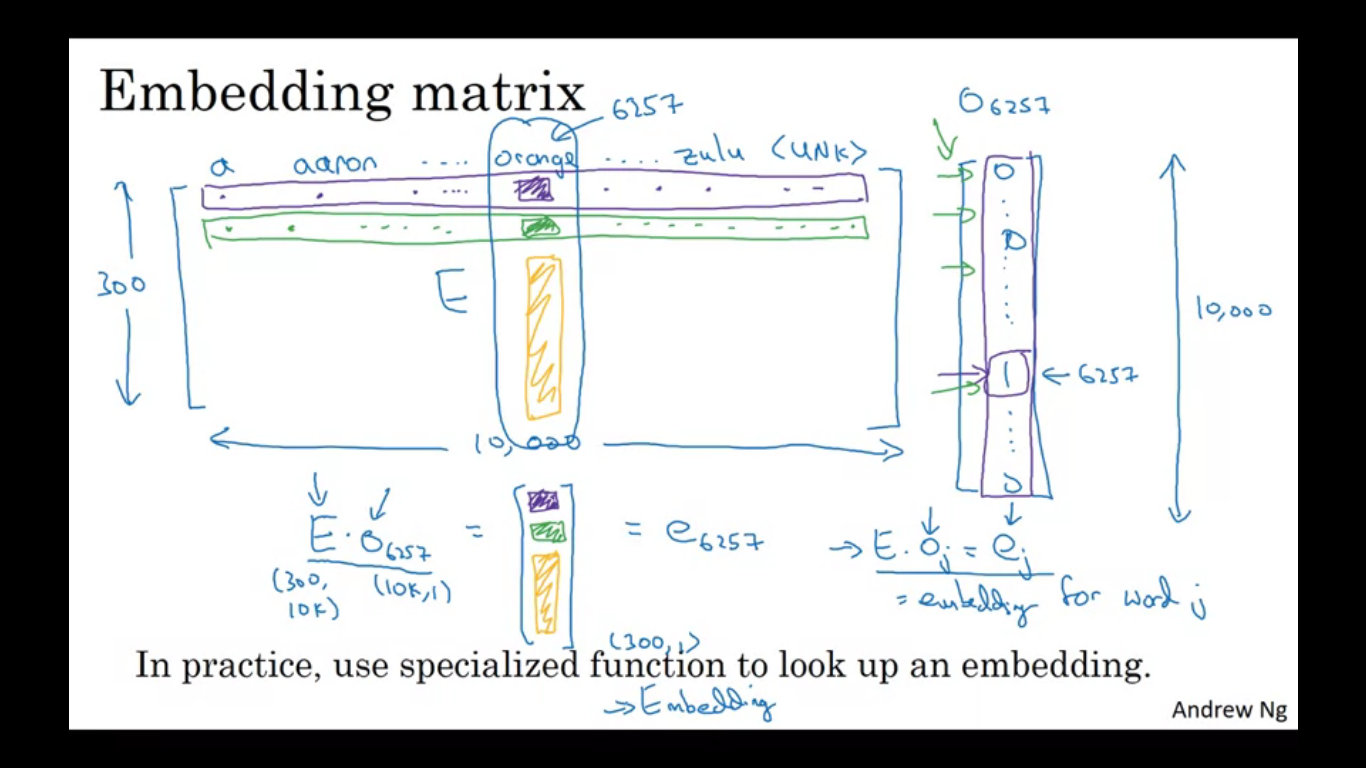 Embedding matrix
6257
O6257
a aaron ..... orange ..... zulu <UNK>
0
0
300
E
10,000
1 ← 6257
10,000
0
E · O6257 = [ ] = e6257
→ E · Oj = ej
(300, 10K) (10K, 1)
= embedding for word j
(300, 1)
In practice, use specialized function to look up an embedding.
→ Embedding
Andrew Ng